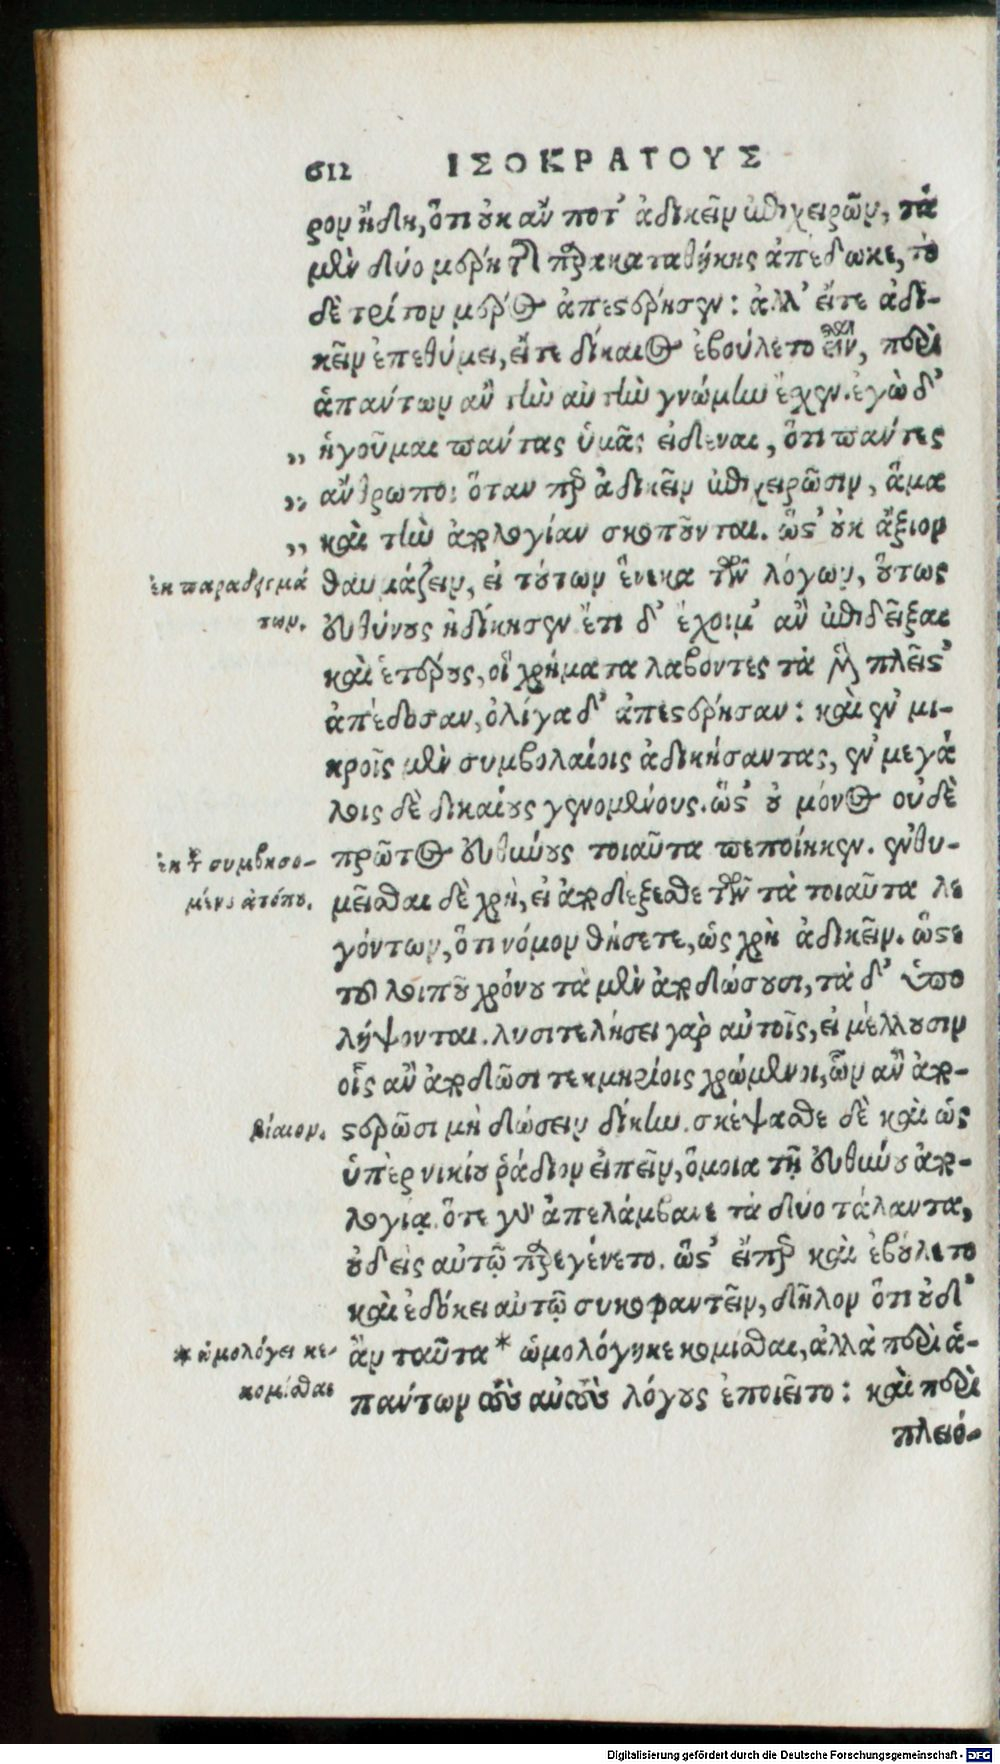 612 ΙΣΟΚΡΑΤΟΥΣ
ρον ἤδη, ὅτι οὐκ ἄν ποτ' ἀδικεῖν ἐπιχειρῶν, τὰ
μὲν δύο μέρη τῆς παρακαταθήκης ἀπέδωκε, τὸ
δὲ τρίτον μέρος ἀπεστέρησεν: ἀλλ' εἴτε ἀδι-
κεῖν ἐπεθύμει, εἴτε δίκαιος ἐβούλετο εἶναι, περὶ
ἁπάντων ἂν τὴν αὐτὴν γνώμην ἔχειν. ἐγὼ δ'
„ ἡγοῦμαι πάντας ὑμᾶς εἰδέναι, ὅτι πάντες
„ ἄνθρωποι ὅταν περ ἀδικεῖν ἐπιχειρῶσιν, ἅμα
„ καὶ τὴν ἀπολογίαν σκοποῦνται. ὥστ' οὐκ ἄξιον
ἐκ παραδειγμά θαυμάζειν, εἰ τούτων ἕνεκα τῶν λόγων, οὕτως
των. Εὐθύνους ἠδίκησεν. ἔτι δ' ἔχοιμ' ἂν ἐπιδεῖξαι
καὶ ἑτέρους, οἳ χρήματα λαβόντες τὰ μὲν πλεῖστ'
ἀπέδοσαν, ὀλίγα δ' ἀπεστέρησαν: καὶ ἐν μι-
κροῖς μὲν συμβολαίοις ἀδικήσαντας, ἐν μεγά
λοις δὲ δικαίους γενομένους. ὥστ' οὐ μόνος οὐδὲ
ἐκ τοῦ συμβησο- πρῶτος Εὐθύνους τοιαῦτα πεποίηκεν. ἐνθυ-
μένου ἀτόπου. μεῖσθαι δὲ χρή, εἰ ἀποδέξεσθε τῶν τὰ τοιαῦτα λε
γόντων, ὅτι νόμον θήσετε, ὡς χρὴ ἀδικεῖν. ὥστε
τοῦ λοιποῦ χρόνου τὰ μὲν ἀποδώσουσι, τὰ δ' ὑπο
λήψονται. λυσιτελήσει γὰρ αὐτοῖς, εἰ μέλλουσιν
οἷς ἂν ἀποδῶσι τεκμηρίοις χρώμενοι, ὧν ἂν ἀπο-
βίαιον. στερῶσι μὴ δώσειν δίκην. σκέψασθε δὲ καὶ ὡς
ὑπὲρ νικίου ῥάδιον εἰπεῖν, ὅμοια τῇ Εὐθύνου ἀπο-
λογίᾳ. ὅτε γὰρ ἀπελάμβανε τὰ δύο τάλαντα,
οὐδεὶς αὐτῷ παρεγένετο. ὥστ' εἴπερ καὶ ἐβούλετο
καὶ ἐδόκει αὐτῷ συκοφαντεῖν, δῆλον ὅτι οὐδ'
* ὡμολόγει κε- ἂν ταῦτα * ὡμολόγηκε κομίσασθαι, ἀλλὰ περὶ ἁ-
κομίσθαι πάντων τοὺς αὐτοὺς λόγους ἐποιεῖτο: καὶ περὶ
πλειό-
Digitalisierung gefördert durch die Deutsche Forschungsgemeinschaft - DFG